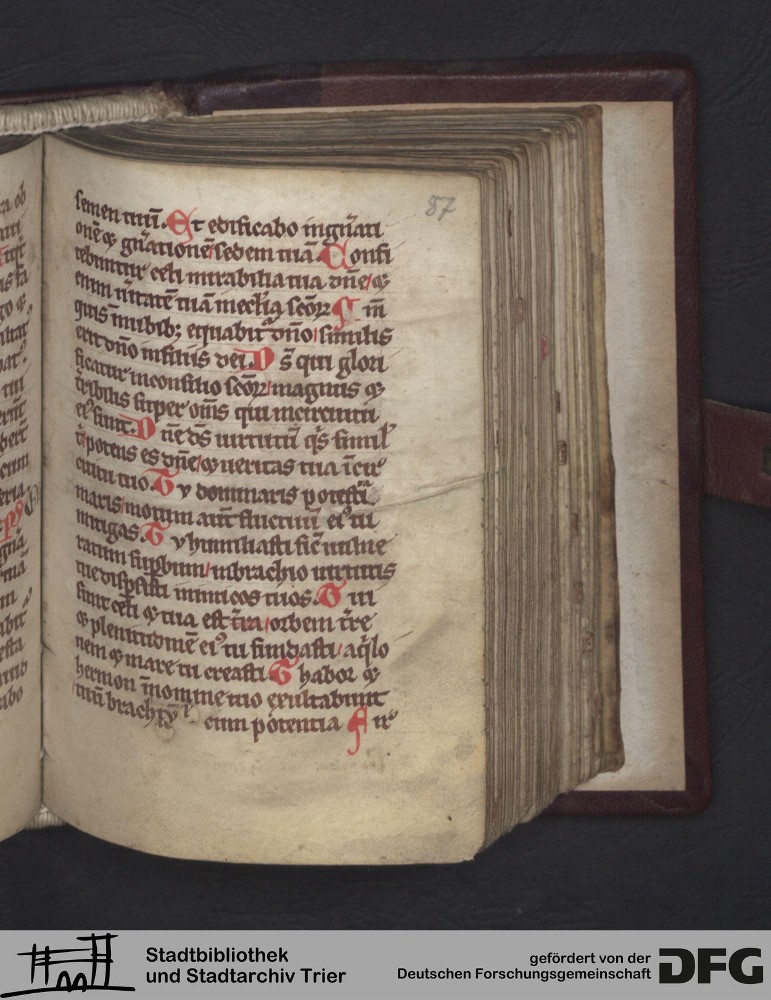 87
semen tuū. Et edificabo ingn̄ati
onē ꝫ gn̄ationē sedem tuā. Confi
tebuntur celi mirabilia tua dn̄e / ꝫ
enim ū̄itatē tuā
quis innubibꝫ equabit dn̄o / similis
erit dn̄o infiliis dei. D s̄ qui glori
ficatur inconsilio sc̄oꝝ / magnus ꝫ
t̄ribilis super om̄s qui incircuitu
eiꝰ sunt. D ne ds̄ uirtutū qͥs simil
potens es dn̄e / ꝫ ueritas tua ī cir
cuitu tuo. T v dominaris potestati
maris / motum aut̄ fluctuū eiꝰ tu
mitigas. T v humiliasti sic̄ uulne
ratum supbum / inbrachio uirtutis
tue disp̄sisti inimicos tuos. T ui
sunt celi ꝫ tua est t̄ra / orbem t̄re
ꝫ plenitudinē eiꝰ tu fundasti / aqͥlo
nem ꝫ mare tu creasti. T habor ꝫ
hermon ī nomine tuo exultabunt
tuū brachiū cum potentia F ir
Stadtbibliothek
und Stadtarchiv Trier
gefördert von der
Deutschen Forschungsgemeinschaft
DFG